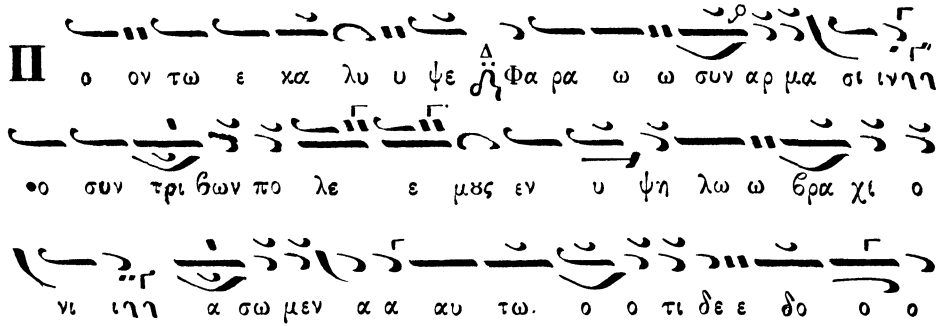 Π ο ον τω ε κα λυ υ ψε Δ Φα ρα ω ω συν αρ μα σι ιν
ο συν τρι βων πο λε ε μους εν υ ψη λω ω βρα χι ο
νι ι α σω μεν α α αυ τω. ο ο τι δε ε δο ο ο